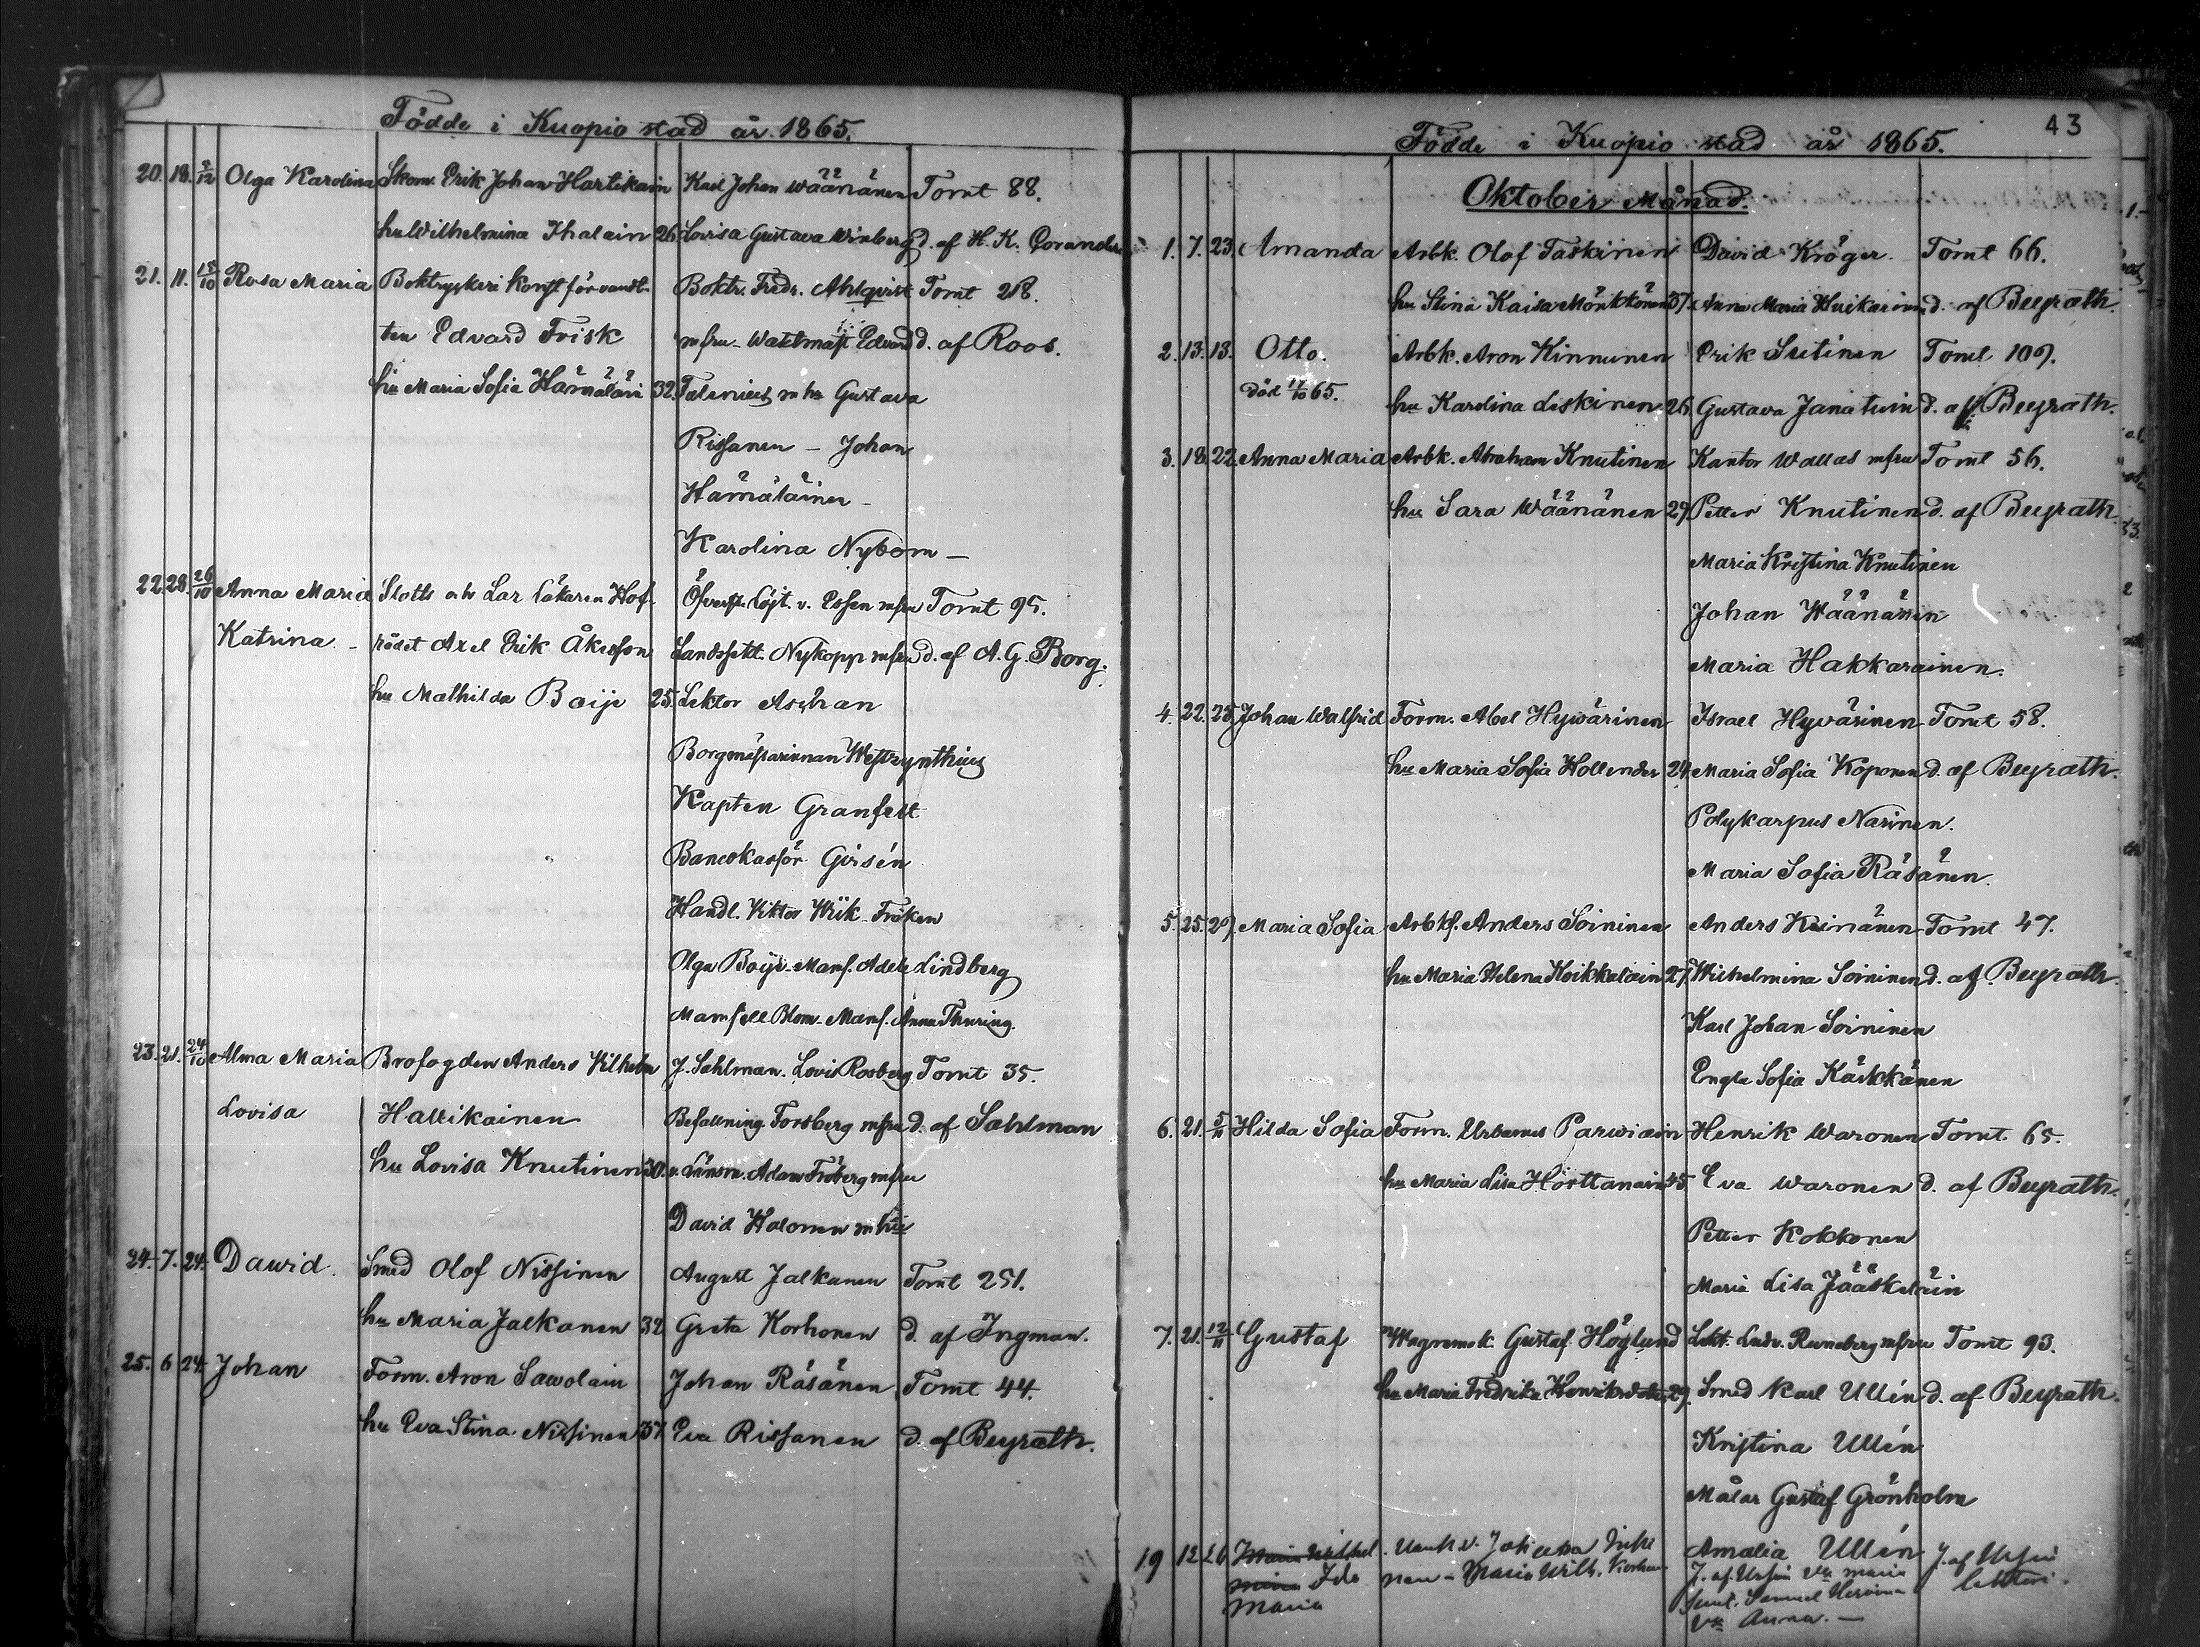 Födde i Kuopio stad år 1865.
20. 18. 2/12 Olga Karolina Skom. Erik Johan Hartikain Karl Johan Wäänänen Tomt 88.
hu Wilhelmina Ihalain 26. Lovisa Gustava Winberg d. af H. K. Corander
21. 11. 18/10 Rosa Maria Boktryckeri Konst förvandt- Boktr. Fredr. Ahlqvist Tomt 218.
ten Edvard Frisk mfru Edvard d. af Roos.
hu Maria Sofia Hämäläin 32. m hu Gustava
Rissanen – Johan
Hämäläinen –
Karolina Nybom –
22. 28. 26/10 Anna Maria Slotts och Laz. Läkaren Hof- Öfverste Löjt. v. Essen mfru Tomt 95.
Katrina. rådet Axel Erik Åkesson Nykopp mfru d. af A. G. Borg.
hu Mathilda Boije 25. Lektor Aschan
Borgmästarinnan Westzynthius
Kapten Granfelt
Girsén
Handl. Viktor Wiik Fröken
Olga Boije Mams. Adele Lindberg
Mamsell Blom. Mams. Anna Thuring.
23. 21. 24/10 Alma Maria Brofogden Anders Vilhelm J. Sahlman. Lovis Rosberg Tomt 35.
Lovisa Hallikainen Befallning. Forsberg mfru d. af Sahlman
hu Lovisa Knutinen 30. v. Länsm. Adam Fröberg mfru
David Holonen m hu
24. 7. 24. Dawid. Smed Olof Nissinen August Jalkanen Tomt 251.
hu Maria Jalkanen 32 Greta Korhonen d. af Ingman.
25. 6 24. Johan Form. Aron Sawolain Johan Räsänen Tomt 44.
hu Eva Stina Nissinen 37 Eva Rissanen d. af Beyrath.
43
Födde i Kuopio stad år 1865.
Oktober Månad.
1. 7. 23. Amanda Arbk. Olof Taskinen David Kröger. Tomt 66.
hu Stina Kaisa Mönkkönen 37. Anna Maria d. af Beyrath.
2. 13. 13. Otto. Arbk. Aron Kinnunen Erik Sutinen Tomt 107.
död 17/10 65. hu Karolina Leskinen 26 Gustava Janatuin d. af Beyrath.
3. 18. 22. Anna Maria Arbk. Abraham Knutinen Kantor Wallas mfru Tomt 56.
hu Sara Wäänänen 29. Petter Knutinen d. af Beyrath
Maria Kristina Knutinen
Johan Wäänänen
Maria Hakkarainen.
4. 22. 25. Johan Walfrid Form. Abel Hyvärinen Israel Hyvärinen Tomt 58.
hu Maria Sofia Hollender 24. Maria Sofia Koponen d. af Beyrath.
Polykarpus Narinen.
Maria Sofia Räsänen.
5. 25. 29. Maria Sofia Arbk. Anders Soininen Anders Keinänen Tomt 47.
hu Maria Helena Koikkalain 27. Wilhelmina Soininen d. af Beyrath.
Karl Johan Soininen
Engla Sofia Kärkkänen
6. 21. 5/11 Hilda Sofia Form. Urbanus Parwiain Henrik Waronen Tomt 65.
hu Maria Lisa Hörttanain 45 Eva Waronen d. af Beyrath.
Petter Kokkonen
Maria Lisa Jääskeläin
7. 21. 12/11 Gustaf Wagnmak. Gustaf Höglund Lekt. Ludv. Runeberg mfru Tomt 93.
hu Maria Fredrika 29. Smed Karl Ullén d. af Beyrath.
Kristina Ullén
Målar Gustaf Grönholm
19 12 26 Amalia Ullén J. af Ursin
Ida nen – Maria Wilh. J. af Ursin Maria
Maria Samuel
Anna. –